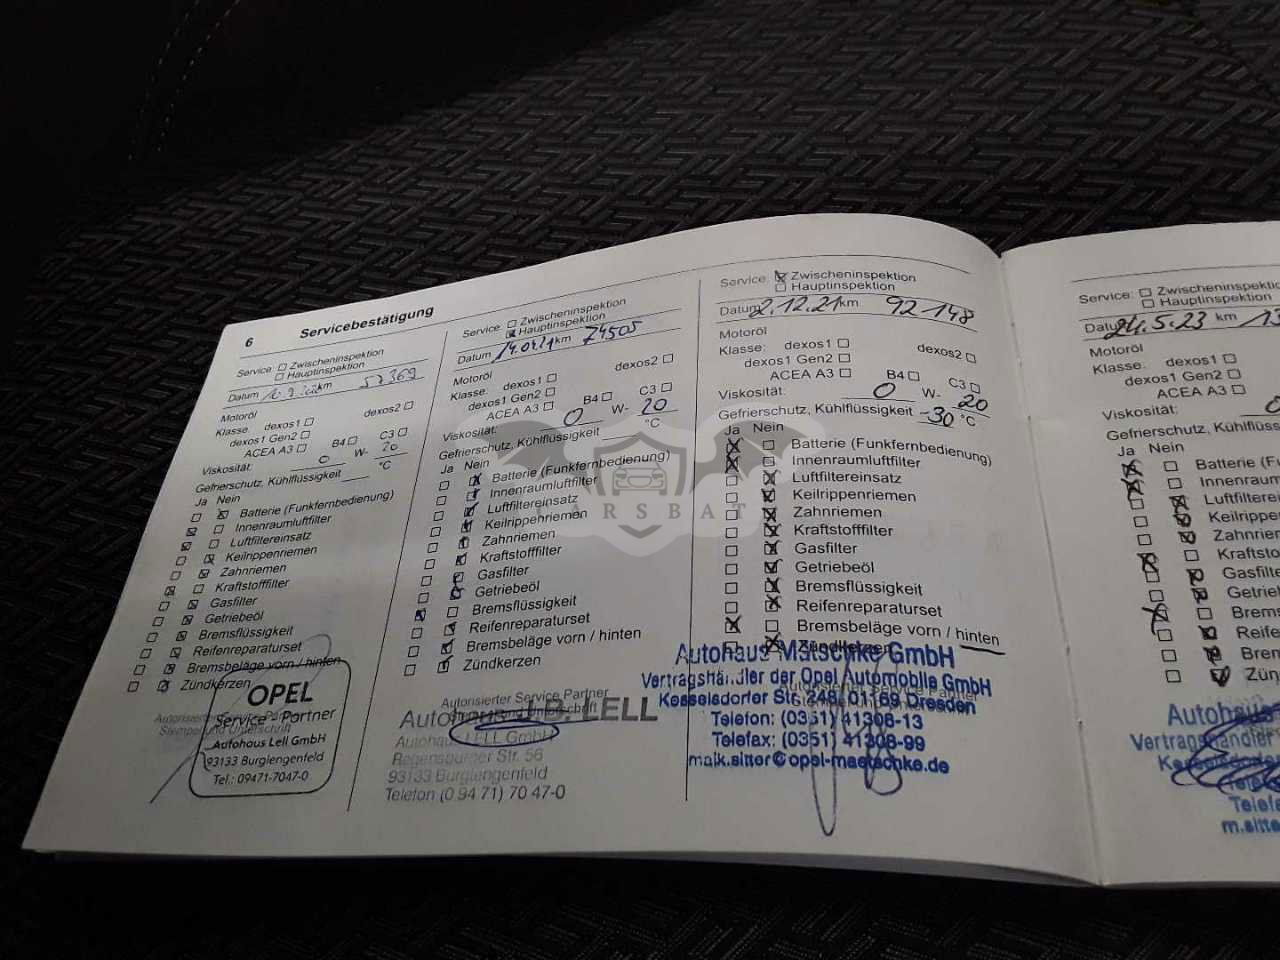 6
Servicebestätigung
Service: Zwischeninspektion
Hauptinspektion
Datum km 57369
Motoröl
Klasse: dexos1 dexos2
dexos1 Gen2
ACEA A3 B4 C3
Viskosität: 0 W- 20
Gefrierschutz, Kühlflüssigkeit °C
Ja Nein
Batterie (Funkfernbedienung)
Innenraumluftfilter
Luftfiltereinsatz
Keilrippenriemen
Zahnriemen
Kraftstofffilter
Gasfilter
Getriebeöl
Bremsflüssigkeit
Reifenreparaturset
Bremsbeläge vorn / hinten
Zündkerzen
Autorisierter Service Partner
Stempel und Unterschrift
OPEL
Service - Partner
Autohaus Lell GmbH
93133 Burglengenfeld
Tel.: 09471-7047-0
Service: Zwischeninspektion
Hauptinspektion
Datum 14.04.21 km 74505
Motoröl
Klasse: dexos1 dexos2
dexos1 Gen2
ACEA A3 B4 C3
Viskosität: 0 W- 20
Gefrierschutz, Kühlflüssigkeit °C
Ja Nein
Batterie (Funkfernbedienung)
Innenraumluftfilter
Luftfiltereinsatz
Keilrippenriemen
Zahnriemen
Kraftstofffilter
Gasfilter
Getriebeöl
Bremsflüssigkeit
Reifenreparaturset
Bremsbeläge vorn / hinten
Zündkerzen
Autorisierter Service Partner
Stempel und Unterschrift
Autohaus LELL
Autohaus LELL GmbH
Regensburger Str. 56
93133 Burglengenfeld
Telefon (0 94 71) 70 47-0
Service: Zwischeninspektion
Hauptinspektion
Datum 2.12.21 km 92-148
Motoröl
Klasse: dexos1 dexos2
dexos1 Gen2
ACEA A3 B4 C3
Viskosität: 0 W- 20
Gefrierschutz, Kühlflüssigkeit -30 °C
Ja Nein
Batterie (Funkfernbedienung)
Innenraumluftfilter
Luftfiltereinsatz
Keilrippenriemen
Zahnriemen
Kraftstofffilter
Gasfilter
Getriebeöl
Bremsflüssigkeit
Reifenreparaturset
Bremsbeläge vorn / hinten
Zündkerzen
Autorisierter Service Partner
Stempel und Unterschrift
Autohaus Matschke GmbH
Vertragshändler der Opel Automobile GmbH
Kesselsdorfer Str. 248, 01169 Dresden
Telefon: (0351) 41308-13
Telefax: (0351) 41308-99
maik.sitter@opel-maetschke.de
Service: Zwischeninspektion
Hauptinspektion
Datum 24.5.23 km 13
Motoröl
Klasse: dexos1
dexos1 Gen2
ACEA A3
Viskosität: 0
Gefrierschutz, Kühlflüssi
Ja Nein
Batterie (Funk
Innenraum
Luftfilterein
Keilripper
Zahnriem
Kraftsto
Gasfilte
Getrie
Brems
Reife
Bren
Zün
Autohaus
Vertragshändler
Telefo
Telefa
m.sitte
CARSBAT